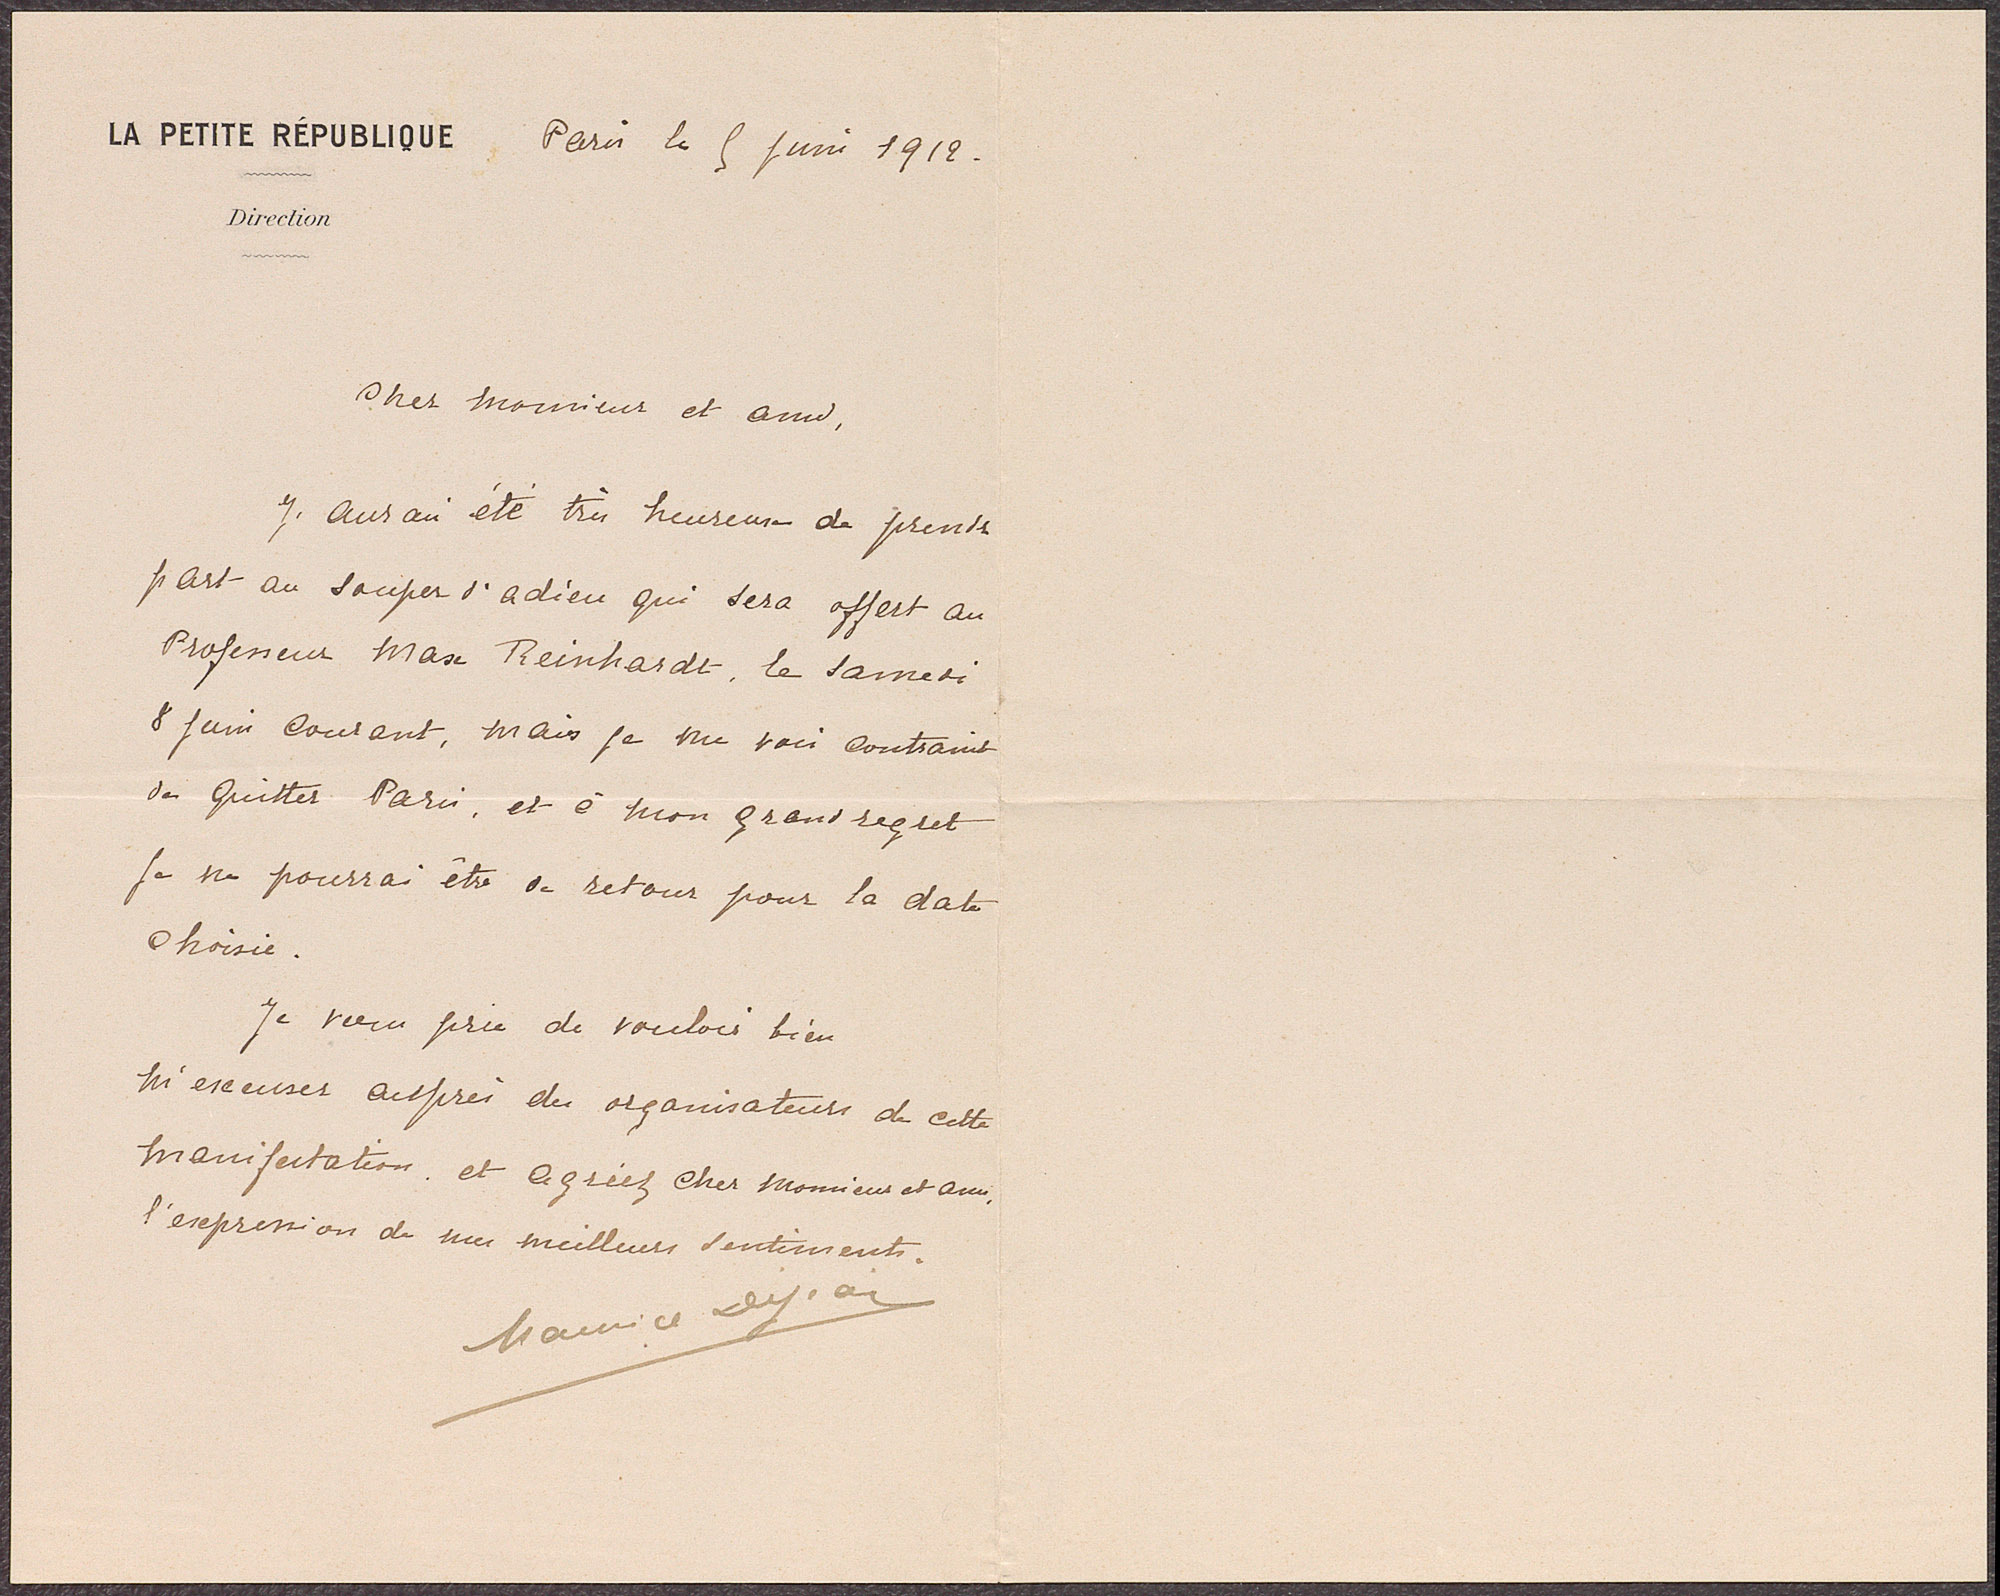 LA PETITE RÉPUBLIQUE
Paris le 5 juin 1912.
Direction
Cher Monsieur et ami,
J'aurai été très heureux de prendre
part au souper d'adieu qui sera offert au
Professeur Max Reinhardt, le samedi
8 juin courant, mais je me vois contraint
de quitter Paris, et à mon grand regret
je ne pourrai être de retour pour la date
choisie.
Je vous prie de vouloir bien
m'excuser auprès des organisateurs de cette
manifestation, et agréez cher Monsieur et ami,
l'expression de mes meilleurs sentiments.
Maurice